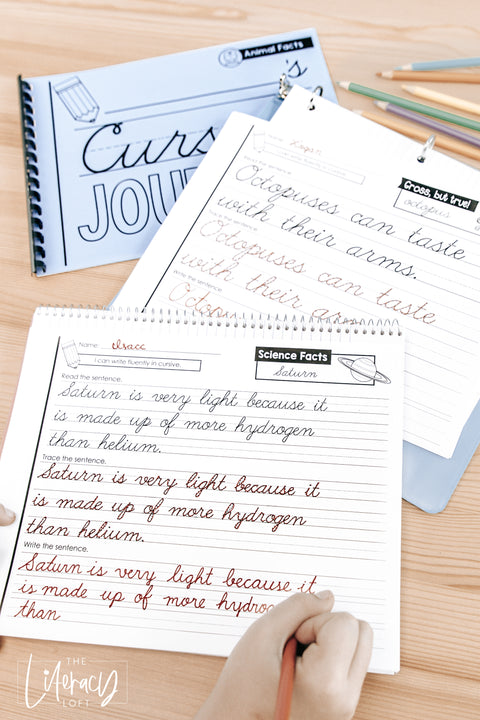 Animal Facts
's
Curs
JOU
Name:
I can write fluently in cursive.
Gross, but true!
octopus
Read the sentence.
Octopuses can taste
with their arms.
Trace the sentence.
Octopuses can taste
with their arms
Write the sentence.
Octopu
Name: Isaac
I can write fluently in cursive.
Science Facts
Saturn
Read the sentence.
Saturn is very light because it
is made up of more hydrogen
than helium.
Trace the sentence.
Saturn is very light because it
is made up of more hydrogen
than helium.
Write the sentence.
Saturn is very light because it
is made up of more hydrog
than
THE
Literacy
LOFT